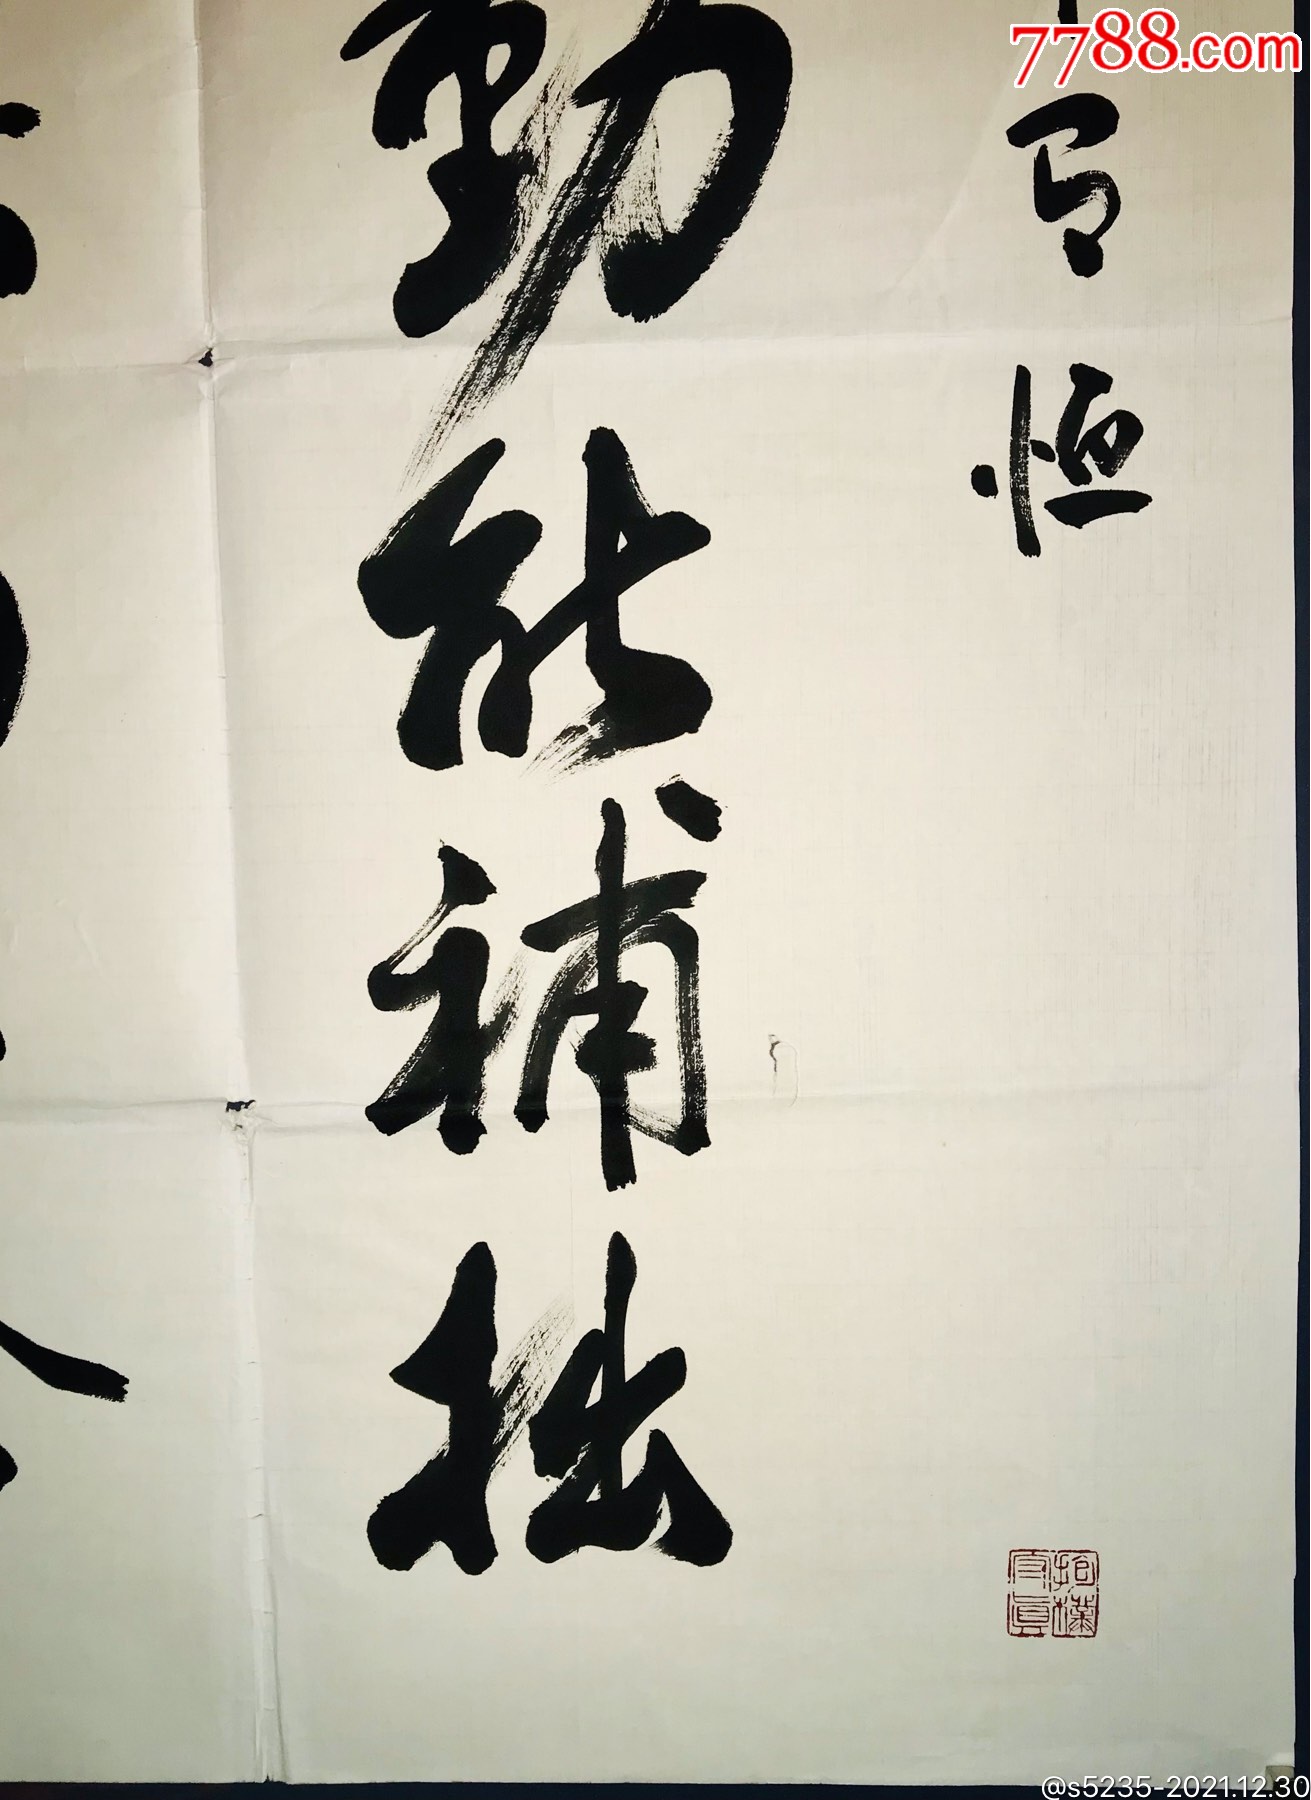 7788.com
有恒
勤能補拙
抱樸守眞
@s5235-2021.12.30